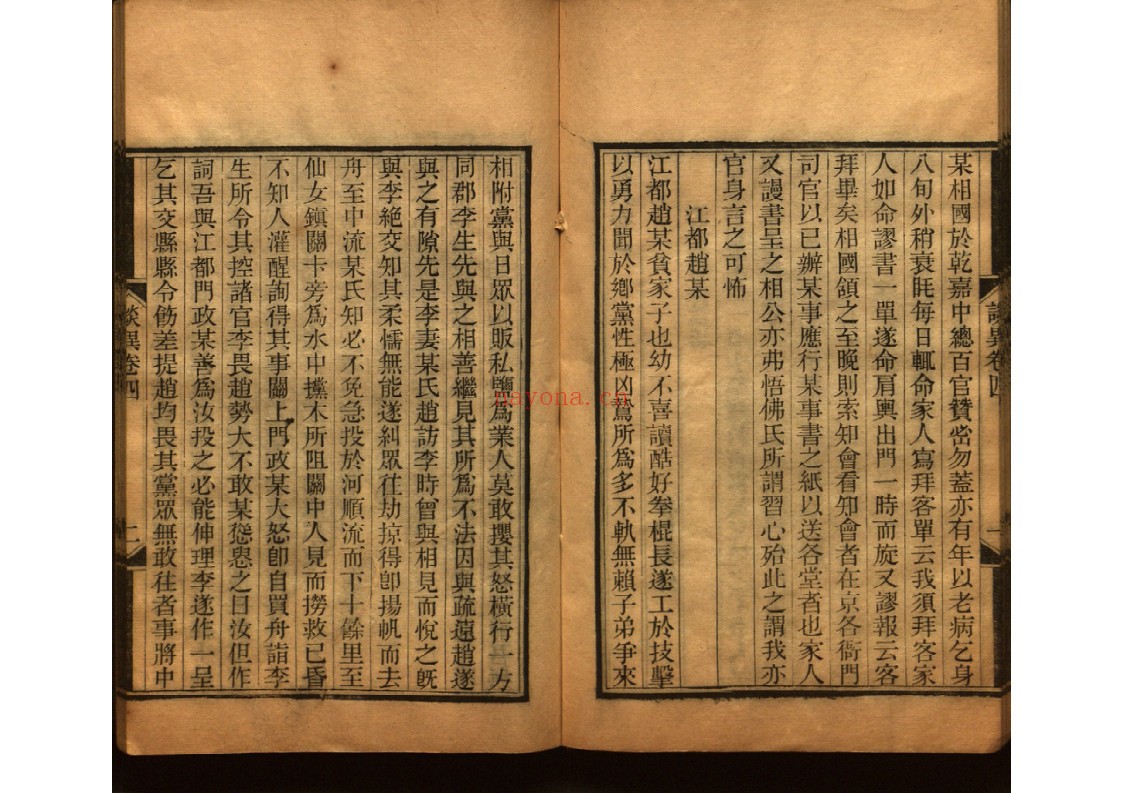 某相國於乾嘉中總百官贊密勿蓋亦有年以老病乞身
八旬外稍衰眊每日輒命家人寫拜客單云我須拜客家
人如命謬書一單遂命肩輿出門一時而旋又謬報云客
拜畢矣相國頷之至晚則索知會看知會者在京各衙門
司官以已辦某事應行某事書之紙以送各堂者也家人
又謾書呈之相公亦弗悟佛氏所謂習心殆此之謂我亦
官身言之可怖
江都趙某
江都趙某貧家子也幼不喜讀酷好拳棍長遂工於技擊
以勇力聞於鄉黨性極凶鷙所為多不軌無賴子弟爭來
談異卷四
一
相附黨與日眾以販私鹽為業人莫敢攖其怒橫行一方
同郡李生先與之相善繼見其所為不法因與疏遠趙遂
與之有隙先是李妻某氏趙訪李時曾與相見而悅之既
與李絕交知其柔懦無能遂糾眾往劫掠得即揚帆而去
舟至中流某氏知必不免急投於河順流而下十餘里至
仙女鎮關卡旁為水中攩木所阻關中人見而撈救已昏
不知人灌醒詢得其事關上門政某大怒即自買舟詣李
生所令其控諸官李畏趙勢大不敢某慫恿之曰汝但作
詞吾與江都門政某善為汝投之必能伸理李遂作一呈
乞其交縣縣令飭差提趙均畏其黨眾無敢往者事將中
談異卷四
二
nayona.cn